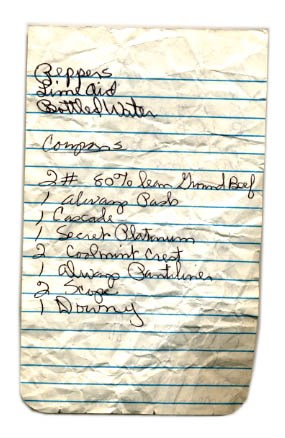 Peppers
Lime aid
Bottled Water
Compons
2# 80% lean Ground Beef
1 Always Pads
1 Cascade
1 Secret Platinum
2 Coolmint Crest
1 Always Pantiliner
2 Scope
1 Downy